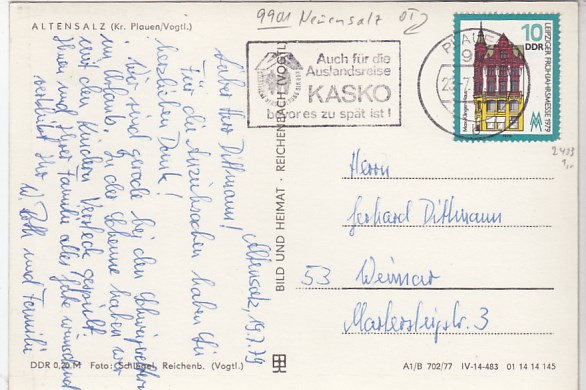 ALTENSALZ (Kr. Plauen/Vogtl.)
9901 Neuensalz
Auch für die
Auslandsreise
KASKO
bevor es zu spät ist!
PLAUEN
10
DDR
LEIPZIGER FRÜHJAHRSMESSE 1979
Altensalz, 19.7.79
Lieber Herr Dittmann!
Für die Anzeichnachen haben Sie
herzlichen Dank!
Wir sind gerade bei den Schwiegereltern
im Urlaub. In der Scheune haben wir
mit den Kindern Versteck gespielt.
Ihnen und Ihrer Familie alles Gute wünschend
verbleibt Ihr
W. Roth und Familie
BILD UND HEIMAT · REICHENBACH (VOGTL)
Herrn
Gerhard Dittmann
53 Weimar
Marstersteigstr. 3
DDR 0,20 M Foto: Schlegel, Reichenb. (Vogtl.)
A1/B 702/77 IV-14-483 01 14 14 145